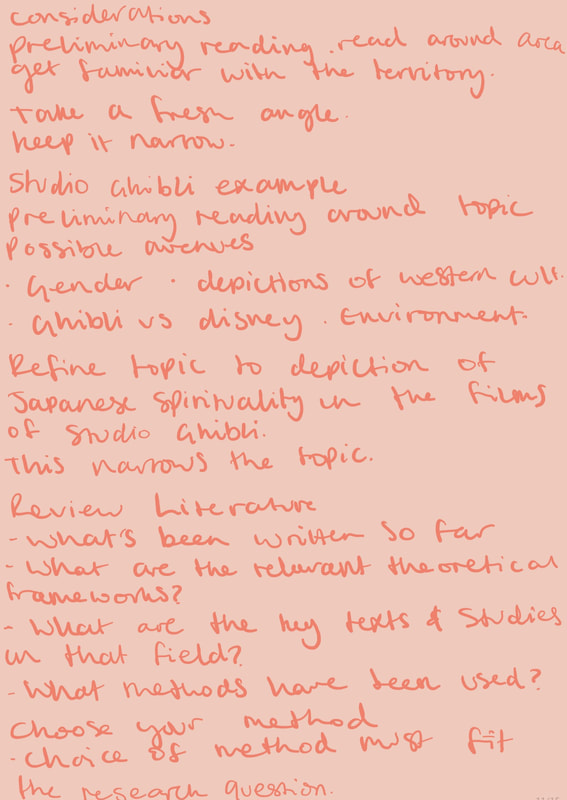 considerations
preliminary reading . read around area
get familiar with the territory.
Take a fresh angle.
keep it narrow.
Studio Ghibli example
preliminary reading around topic
possible avenues
· Gender · depictions of western cult.
· Ghibli vs disney . Environment.
Refine topic to depiction of
Japanese Spirituality in the films
of Studio Ghibli.
This narrows the topic.
Review Literature
- What's been written so far
- What are the relevant theoretical
frameworks?
- What are the key texts & Studies
in that field?
- What methods have been used?
Choose your method
- Choice of method must fit
the research question.